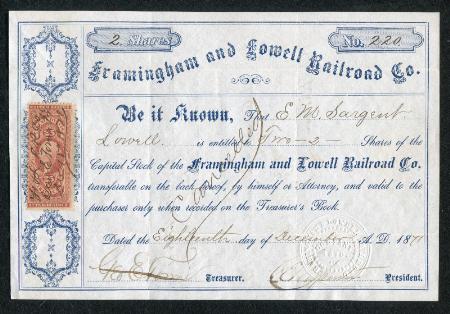 2 Shares No. 220
Framingham and Lowell Railroad Co.
Be it Known, That E. M. Sargent
Lowell is entitled to Two -2- Shares of the
Capital Stock of the Framingham and Lowell Railroad Co.
transferable on the back hereof, by himself or Attorney, and valid to the
purchaser only when recorded on the Treasurer's Book.
Cancelled
Dated the Eighteenth day of December A.D. 1871
Treasurer. President.